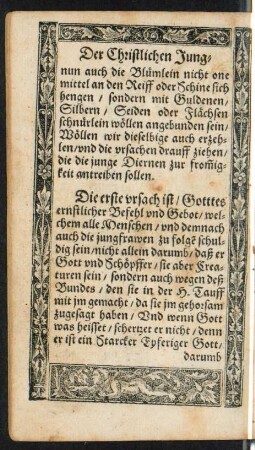 Der Christlichen Jung/
nun auch die Blümlein nicht one
mittel an den Reiff oder Schine sich
hengen / sondern mit Guldenen/
Silbern / Seiden oder Flächsen
schnürlein wöllen angebunden sein/
Wöllen wir dieselbige auch erzeh-
len/vnd die vrsachen drauff ziehen/
die die junge Diernen zur from̃ig-
keit antreiben sollen.
Die erste vrsach ist / Gotttes
ernstlicher Befehl vnd Gebot/wel-
chem alle Menschen / vnd demnach
auch die jungfrawen zu folge schul-
dig sein/nicht allein darumb/daß er
Gott vnd Schöpffer/sie aber Crea-
turen sein / sondern auch wegen deß
Bundes / den sie in der H. Tauff
mit jm gemacht/da sie jm gehorsam
zugesagt haben / Vnd wenn Gott
was heisset/scherzet er nicht / denn
er ist ein starcker Eyferiger Gott/
darumb